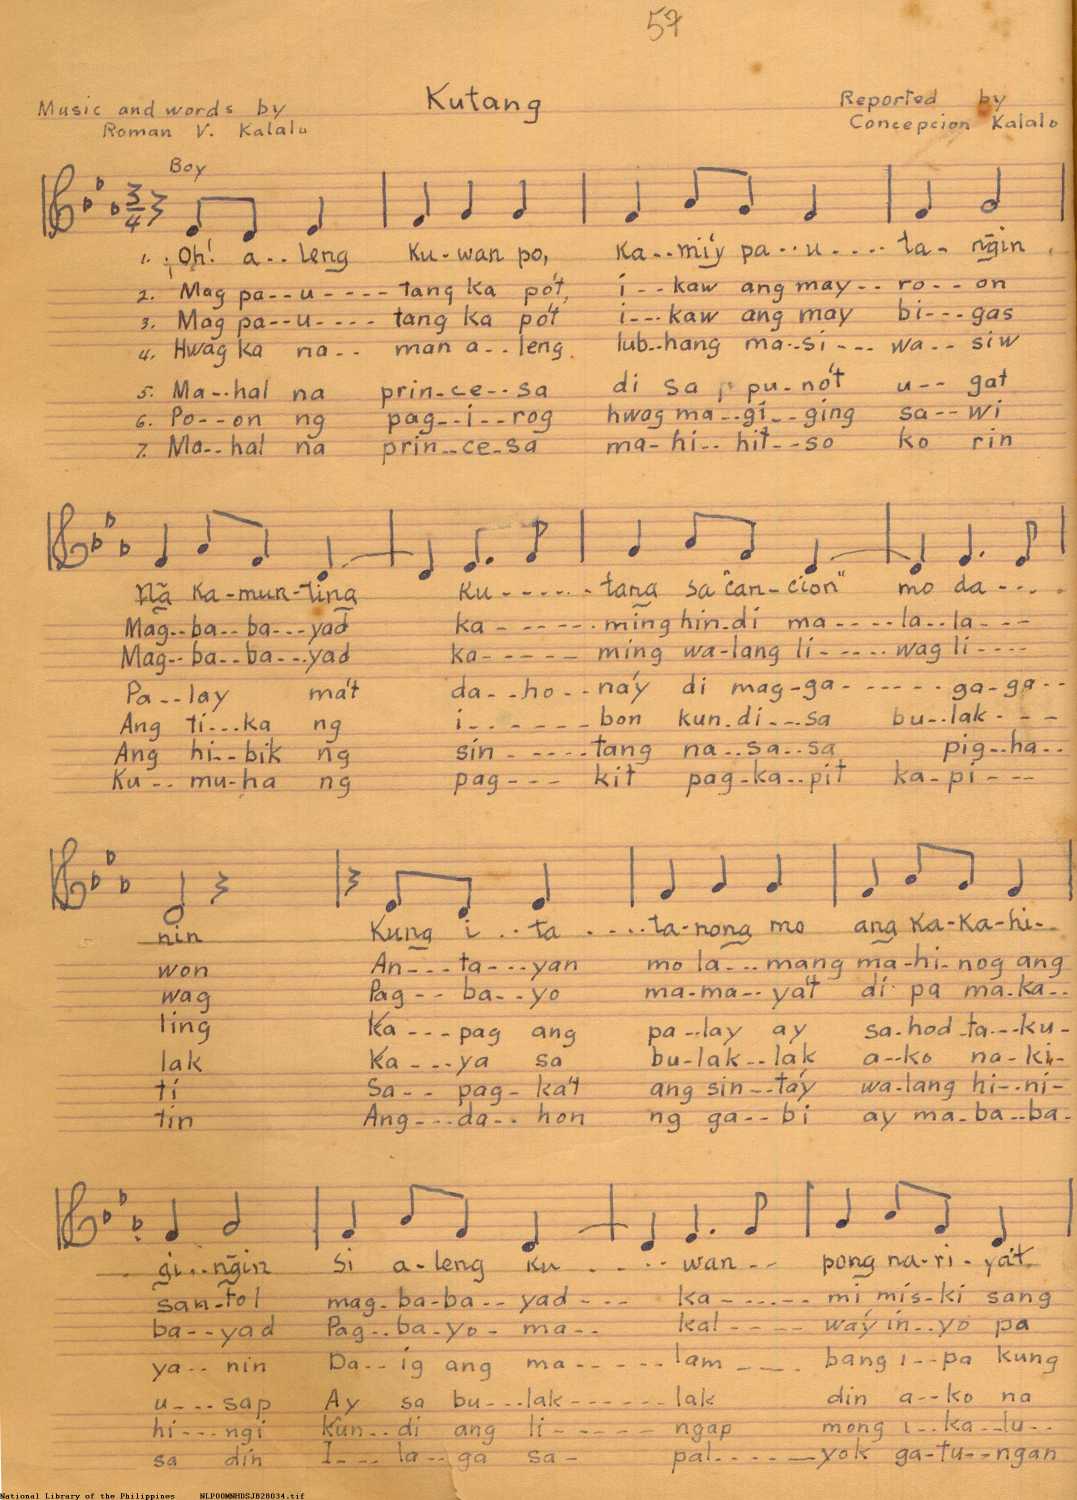 57
Kutang
Music and words by
Roman V. Kalalo
Reported by
Concepcion Kalalo
Boy
3/4
1. Oh! a-- leng Ku-wan po, Ka--mi'y pa--u---- ta- ñgin
2. Mag pa--u----tang ka po't, i--kaw ang may--ro--on
3. Mag pa--u---- tang ka po't i---kaw ang may bi---gas
4. Hwag ka na-- man a--leng lub--hang ma--si--- wa-- siw
5. Ma--hal na prin-ce--sa di sa pu-no't u-- gat
6. Po--on ng pag--i--rog hwag ma--gi--ging sa--wi
7. Ma--hal na prin--ce-sa ma-hi-- hit--so ko rin
Nã ka-mun-ting Ku------ tang sa "can-cion" mo da---
Mag--ba--ba---yad ka------ ming hin-di ma----la--la---
Mag--ba--ba---yad ka------ ming wa-lang li-----wag li----
Pa--lay ma't da--ho--na'y di mag-ga------ga-ga--
Ang ti---ka ng i------bon kun-di---sa bu--lak---
Ang hi--bik ng sin-----tang na--sa--sa pig--ha--
Ku-- mu-ha ng pag--- kit pag-ka--pit ka-pi---
nin Kung i--ta ----ta-nong mo ang Ka-Ka-hi--
won An---ta---yan mo la---mang ma-hi-nog ang
wag Pag-- ba--yo ma-ma--ya't di pa ma-ka--
ling Ka---pag ang pa--lay ay sa-hod-ta---ku-
lak Ka---ya sa bu-lak--lak a--ko na-ki-
ti Sa-- pag-ka't ang sin--ta'y wa-lang hi--ni-
tin Ang---da--hon ng ga--bi ay ma-ba--ba-
gi--ñgin Si a-leng Ku ---- wan-- pong na-ri-ya't
san-tol mag-ba-ba--yad --- ka------mi mis-ki sang
ba--yad Pag--ba-yo- ma-- kal---- wa'y in--yo pa
ya-- nin Da--ig ang ma-----lam ---- bang i--pa kung
u---sap Ay sa bu---lak------lak din a--ko na
hi---ngi Kun--di ang li------ngap mong i--ka-lu--
sa din I---la--ga sa- pal------yok ga-tu--ngan
National Library of the Philippines NLP00MNHDSJB28034.tif